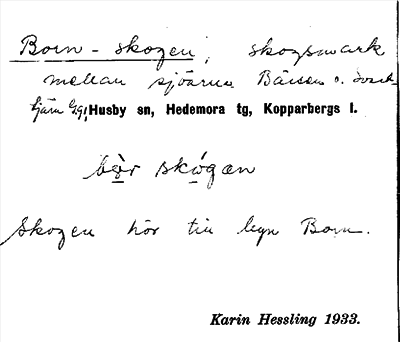 Born-skogen, skogsmark
mellan sjöarna Bärsen o.
tjärn Husby sn, Hedemora tg, Kopparbergs l.
bo̱r sko̱gæn
Skogen hör till byn Born.
Karin Hessling 1933.